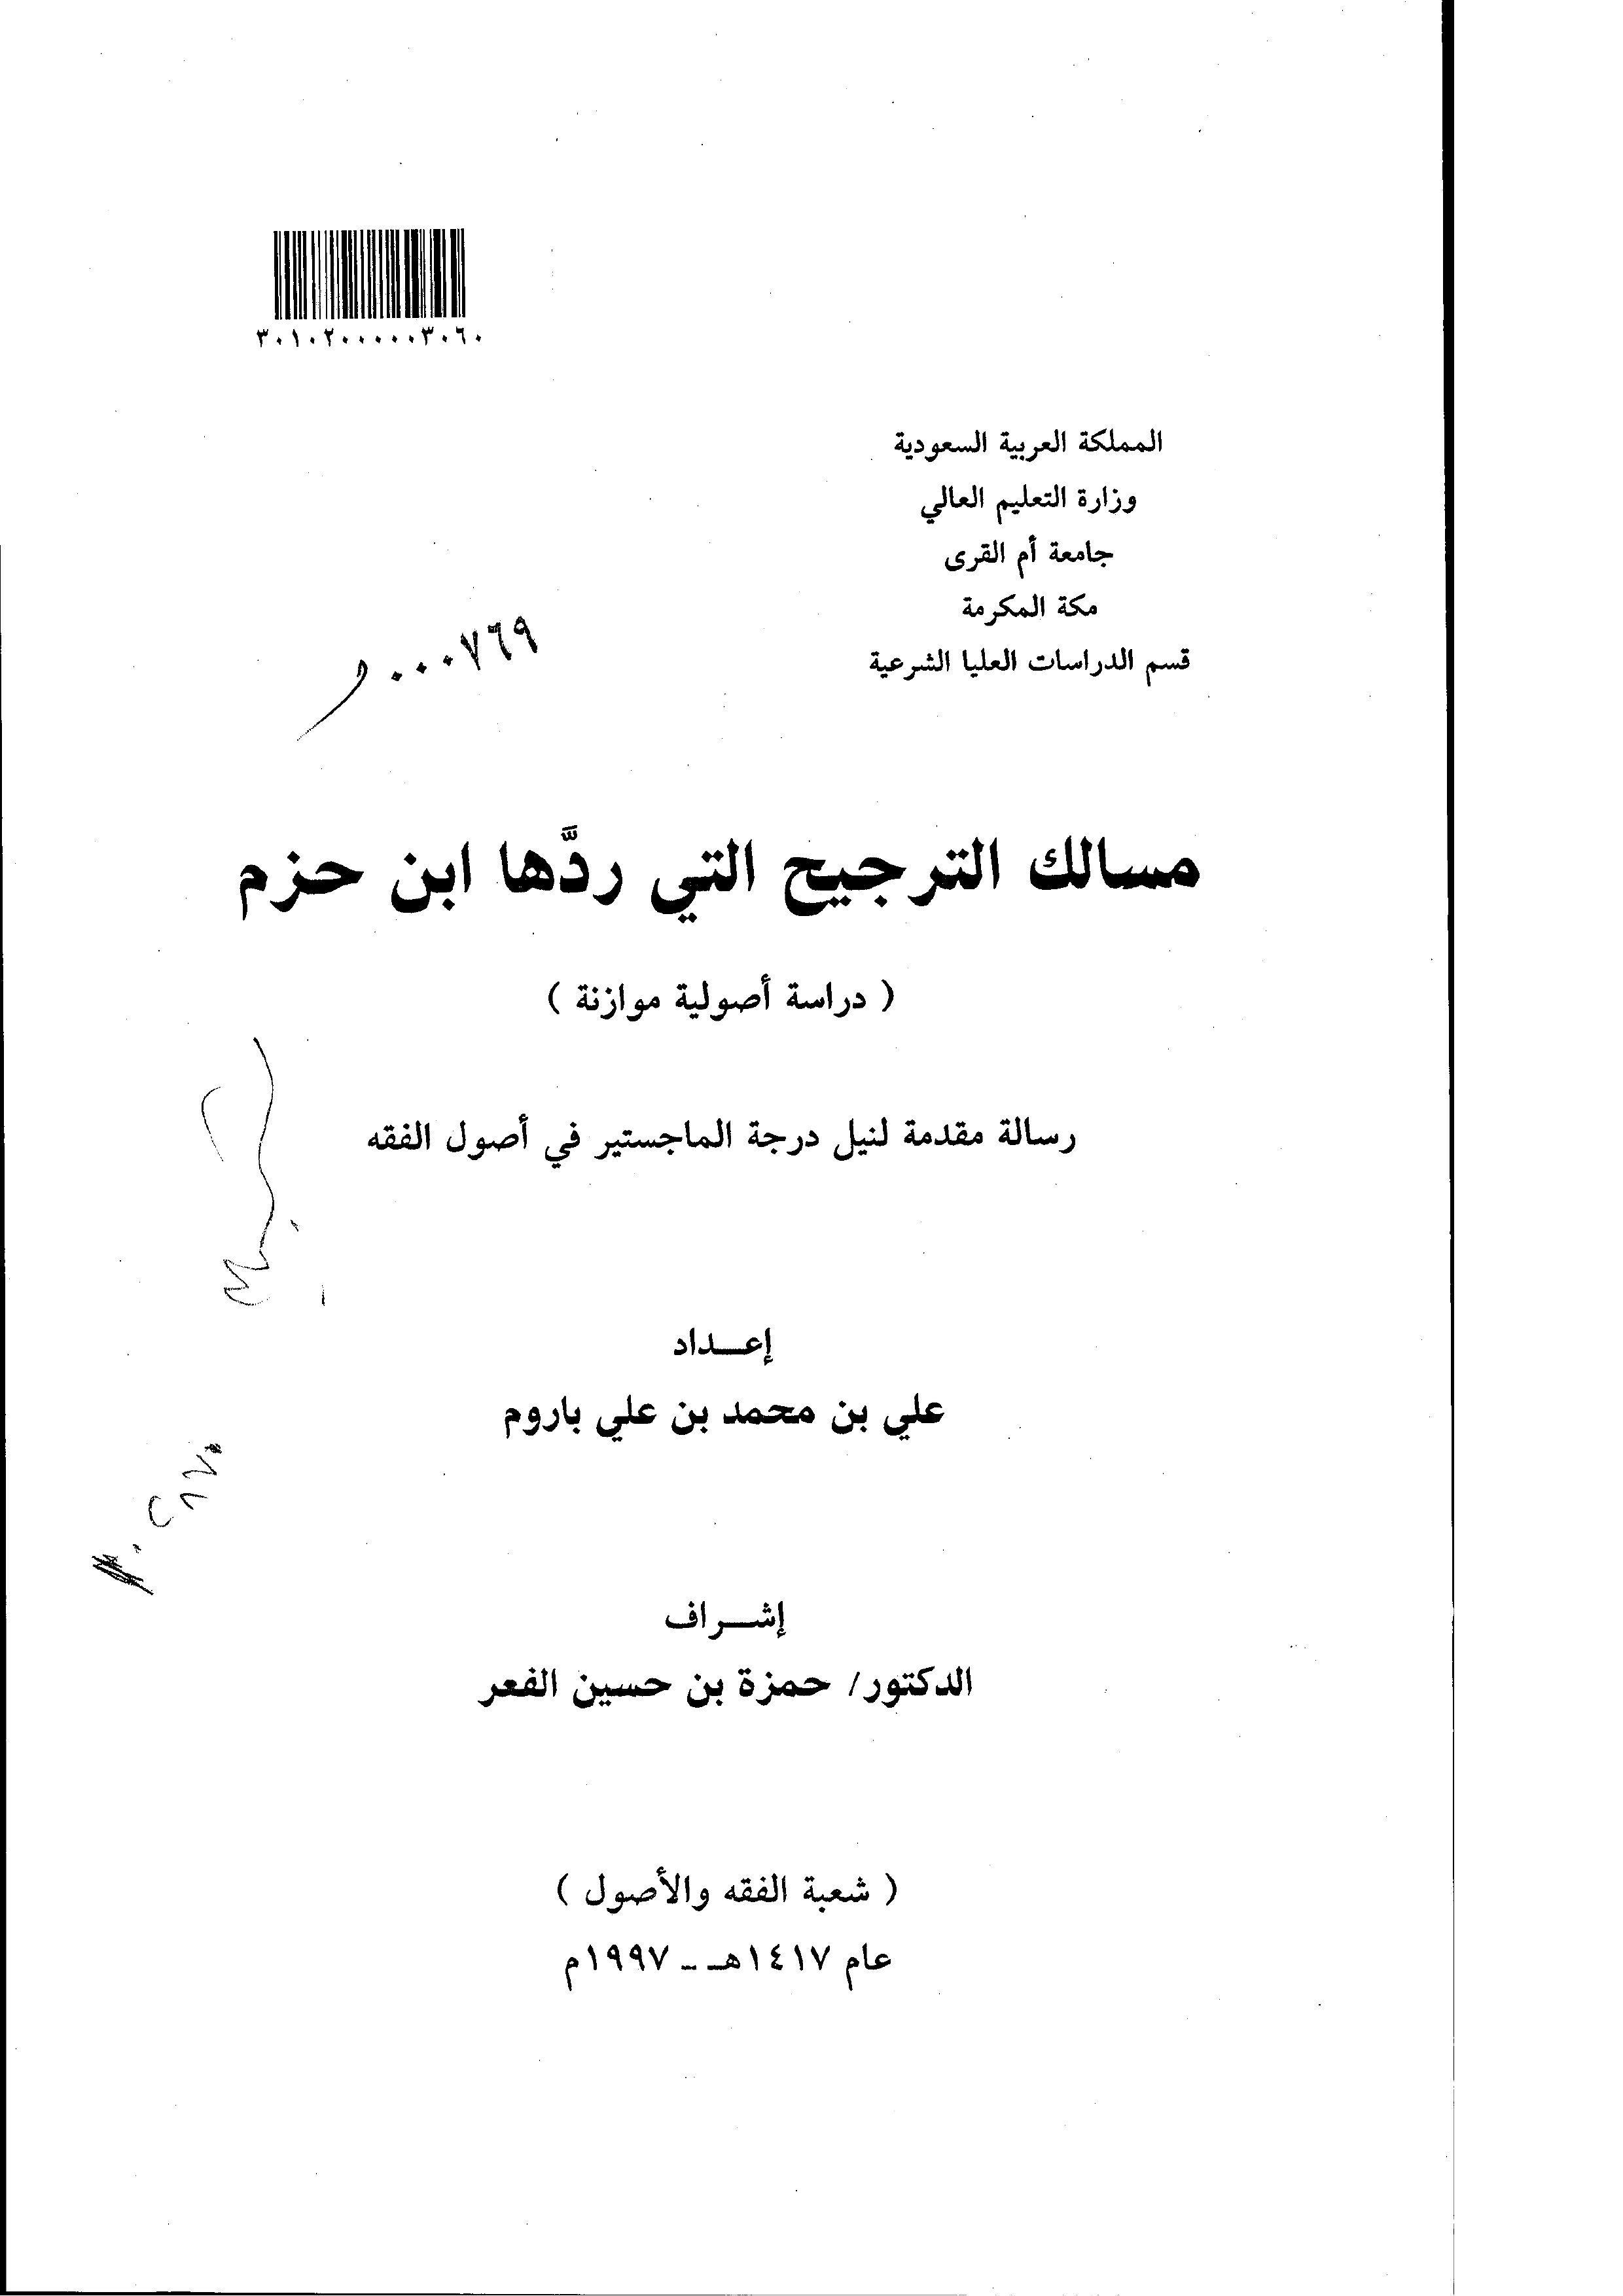 ٣٠١٠٢٠٠٠٠٠٣٠٦٠
المملكة العربية السعودية
وزارة التعليم العالي
جامعة أم القرى
مكة المكرمة
قسم الدراسات العليا الشرعية
٠٠٠٧٦٩
مسالك الترجيح التي ردَّها ابن حزم
( دراسة أصولية موازنة )
رسالة مقدمة لنيل درجة الماجستير في أصول الفقه
إعـــداد
علي بن محمد بن علي باروم
إشـــراف
الدكتور/ حمزة بن حسين الفعر
( شعبة الفقه والأصول )
عام ١٤١٧هـ - ١٩٩٧م